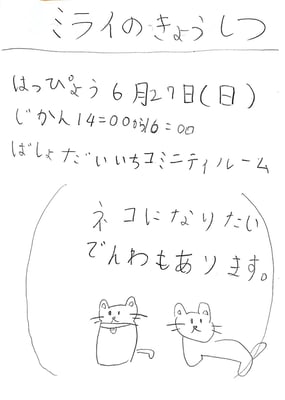 ミライのきょうしつ
はっぴょう6月27日(日)
じかん14=00から16=00
ばしょだいいちコミニティルーム
ネコになりたい
でんわもあります。